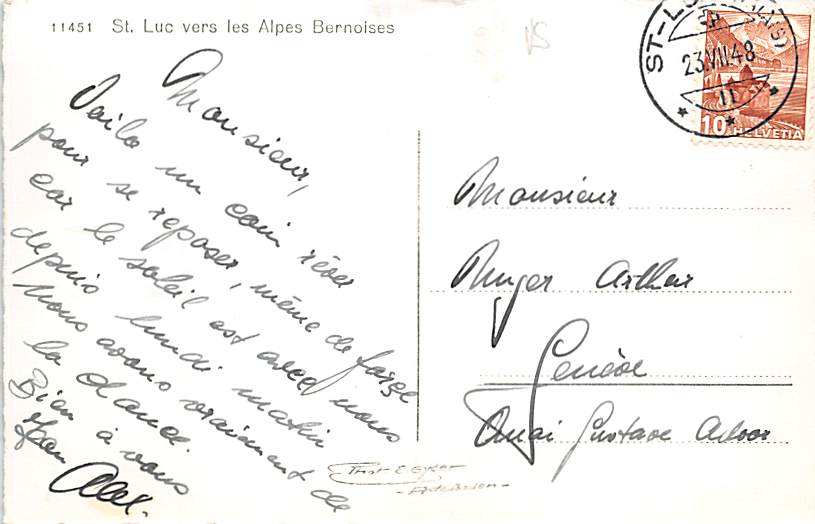 11451 St. Luc vers les Alpes Bernoises
Monsieur,
Voilà un coin rêvé
pour se reposer, même de force
car le soleil est avec nous
depuis lundi matin
nous avons vraiment de
la chance.
Bien à vous
Alex.
ST-LUC
23.VII.48
11
10 HELVETIA
Monsieur
Ruyer Arthur
Genève
Quai Gustave Ador